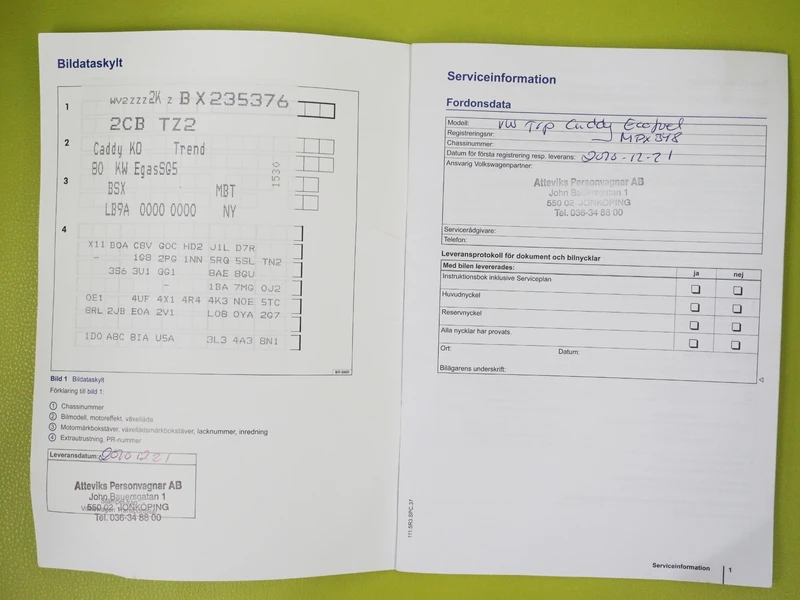 Bildataskylt
1
WV2ZZZ2K Z BX235376
2CB TZ2
2
Caddy KO Trend
80 KW EgasSG5
1530
3
BSX MBT
LB9A 0000 0000 NY
4
X11 B0A C8V G0C HD2 J1L D7R
- 1G8 2PG 1NN 5RQ 5SL TN2
3S6 3U1 QG1 8AE 8GU
- 1BA 7MG 0J2
0E1 4UF 4X1 4R4 4K3 N0E 5TC
8RL 2JB E0A 2V1 L0B 0YA 2G7
1D0 A8C B1A U5A 3L3 4A3 8N1
Bild 1 Bildataskylt
Förklaring till bild 1:
1 Chassinummer
2 Bilmodell, motoreffekt, växellåda
3 Motormärkbokstäver, växellådsmärkbokstäver, lacknummer, inredning
4 Extrautrustning, PR-nummer
Leveransdatum: 2010 12 21
Atteviks Personvagnar AB
John Bauersgatan 1
550 02 JÖNKÖPING
Tel. 036-34 88 00
Serviceinformation
Fordonsdata
Modell: VW Trp Caddy Ecofuel
Registreringsnr: MPX398
Chassinummer:
Datum för första registrering resp. leverans: 2010-12-21
Ansvarig Volkswagenpartner:
Atteviks Personvagnar AB
John Bauersgatan 1
550 02 JÖNKÖPING
Tel. 036-34 88 00
Servicerådgivare:
Telefon:
Leveransprotokoll för dokument och bilnycklar
Med bilen levererades: ja nej
Instruktionsbok inklusive Serviceplan
Huvudnyckel
Reservnyckel
Alla nycklar har provats.
Ort: Datum:
Bilägarens underskrift:
111.5R3.SPC.37
Serviceinformation 1